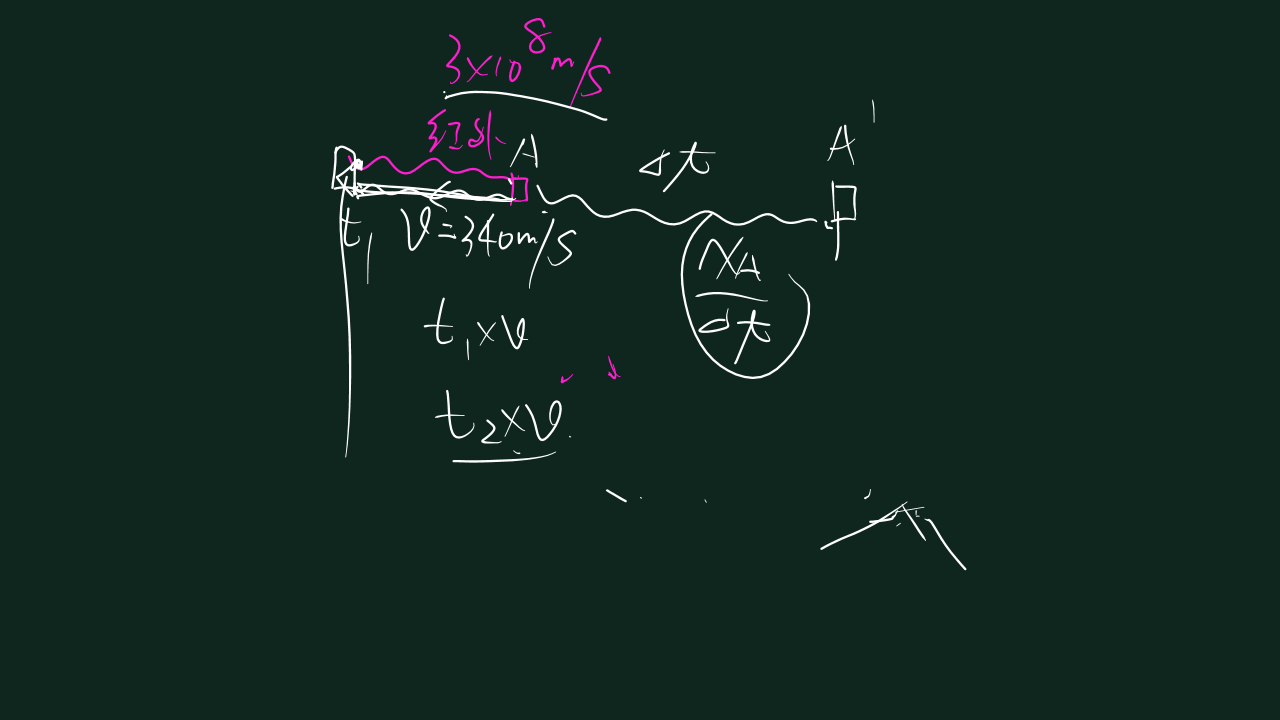 3×10⁸m/s
红外
A
Δt
A'
t₁
v=340m/s
XA
Δt
t₁×v
t₂×v